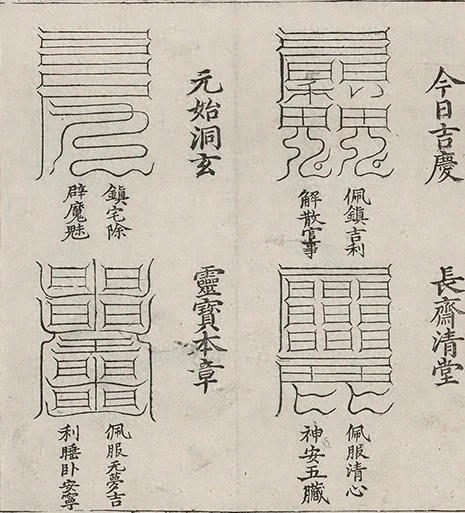 今日吉慶
佩鎮吉利
解散官事
長齋清堂
佩服清心
神安五臟
元始洞玄
鎮宅除
辟魔魅
靈寶本章
佩服无夢吉
利睡卧安寧